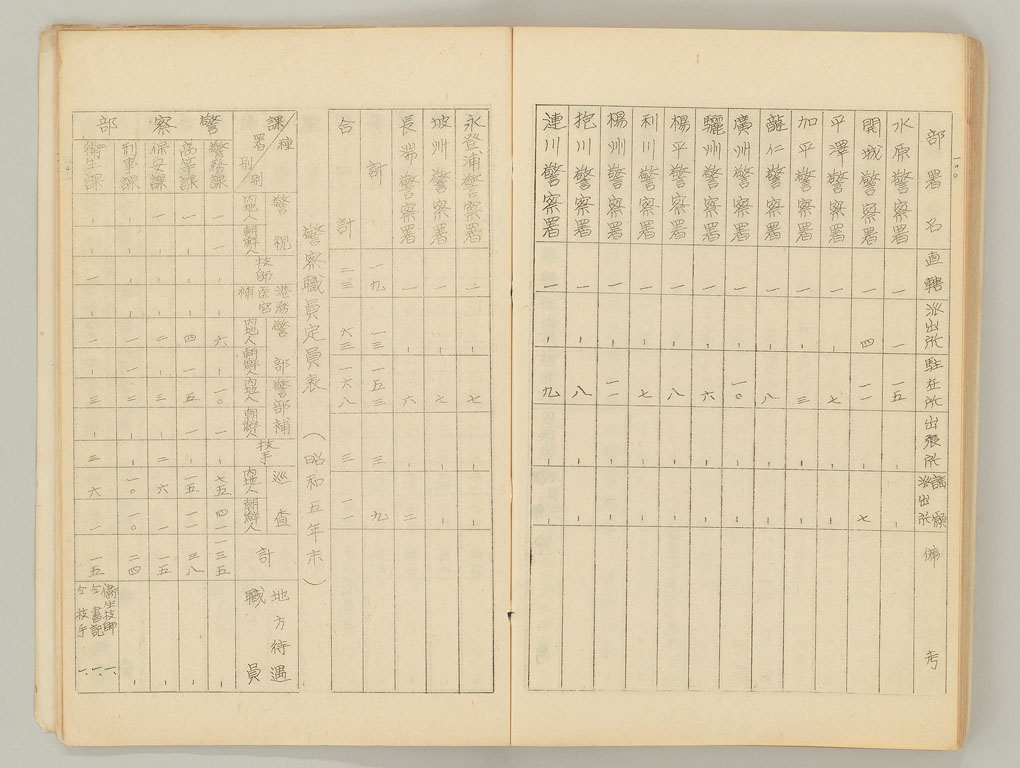 一〇〇
部署名 直轄 派出所 駐在所 出張所 備考
水原警察署 一 一 一五 、 、
開城警察署 一 四 一一 、 七
平澤警察署 一 、 七 、 、
加平警察署 一 、 三 、 、
龍仁警察署 一 、 八 、 、
廣州警察署 一 、 一〇 、 、
驪州警察署 一 、 六 、 、
楊平警察署 一 、 八 、 、
利川警察署 一 、 七 、 、
楊州警察署 一 、 一一 、 、
抱川警察署 一 、 八 、 、
漣川警察署 一 、 九 、 、
永登浦警察署 二 、 七 、 、
坡州警察署 一 、 七 、 、
長湍警察署 一 、 六 、 二
計 一九 一三 一五三 三 九
合計 二三 六三 一六八 三 一一
警察職員定員表 (昭和五年末)
課署別/種別 警視 技師 港務医官補 警部 警部補 技手 巡査 計 地方待遇職員
内地人 朝鮮人 内地人 朝鮮人 内地人 朝鮮人 内地人 朝鮮人
警察部
警務課 一 一 、 、 六 、 一〇 一 、 七五 四一 一三五 、
高等課 一 、 、 、 四 一 五 一 、 一五 一一 三八 、
保安課 一 、 、 、 二 一 三 、 二 六 一 一五 、
刑事課 、 、 、 、 一 一 二 、 、 一〇 一〇 二四 、
衛生課 、 、 一 、 一 、 三 、 三 六 一 一五
衛生技師 一、
仝 書記 一、
仝 技手 一、